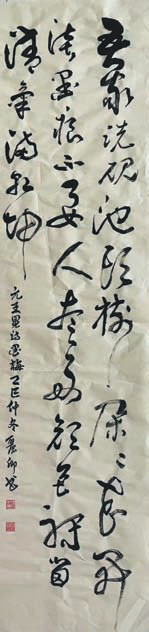 吾家洗硯池頭樹朵々花開
淡墨痕不要人夸好顏色祗留
清氣滿乾坤
元王冕詩墨梅 巳仲冬